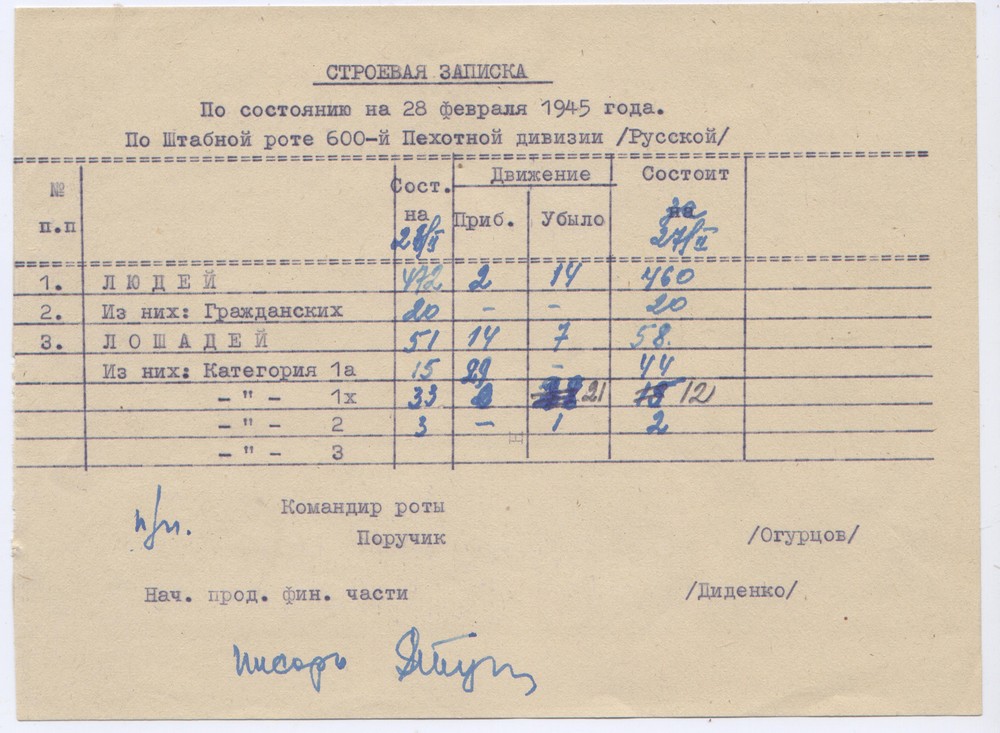 СТРОЕВАЯ ЗАПИСКА
По состоянию на 28 февраля 1945 года.
По Штабной роте 600-й Пехотной дивизии /Русской/
№ п.п Сост. на Движение Приб. Убыло Состоит на 27/II
1. ЛЮДЕЙ 472 2 14 460
2. Из них: Гражданских 20 - - 20
3. ЛОШАДЕЙ 51 14 7 58.
Из них: Категория 1а 15 29 - 44
- " - 1х 33 21 15 12
- " - 2 3 - 1 2
- " - 3
н
п/п.
Командир роты
Поручик /Огурцов/
Нач. прод. фин. части /Диденко/
писарь